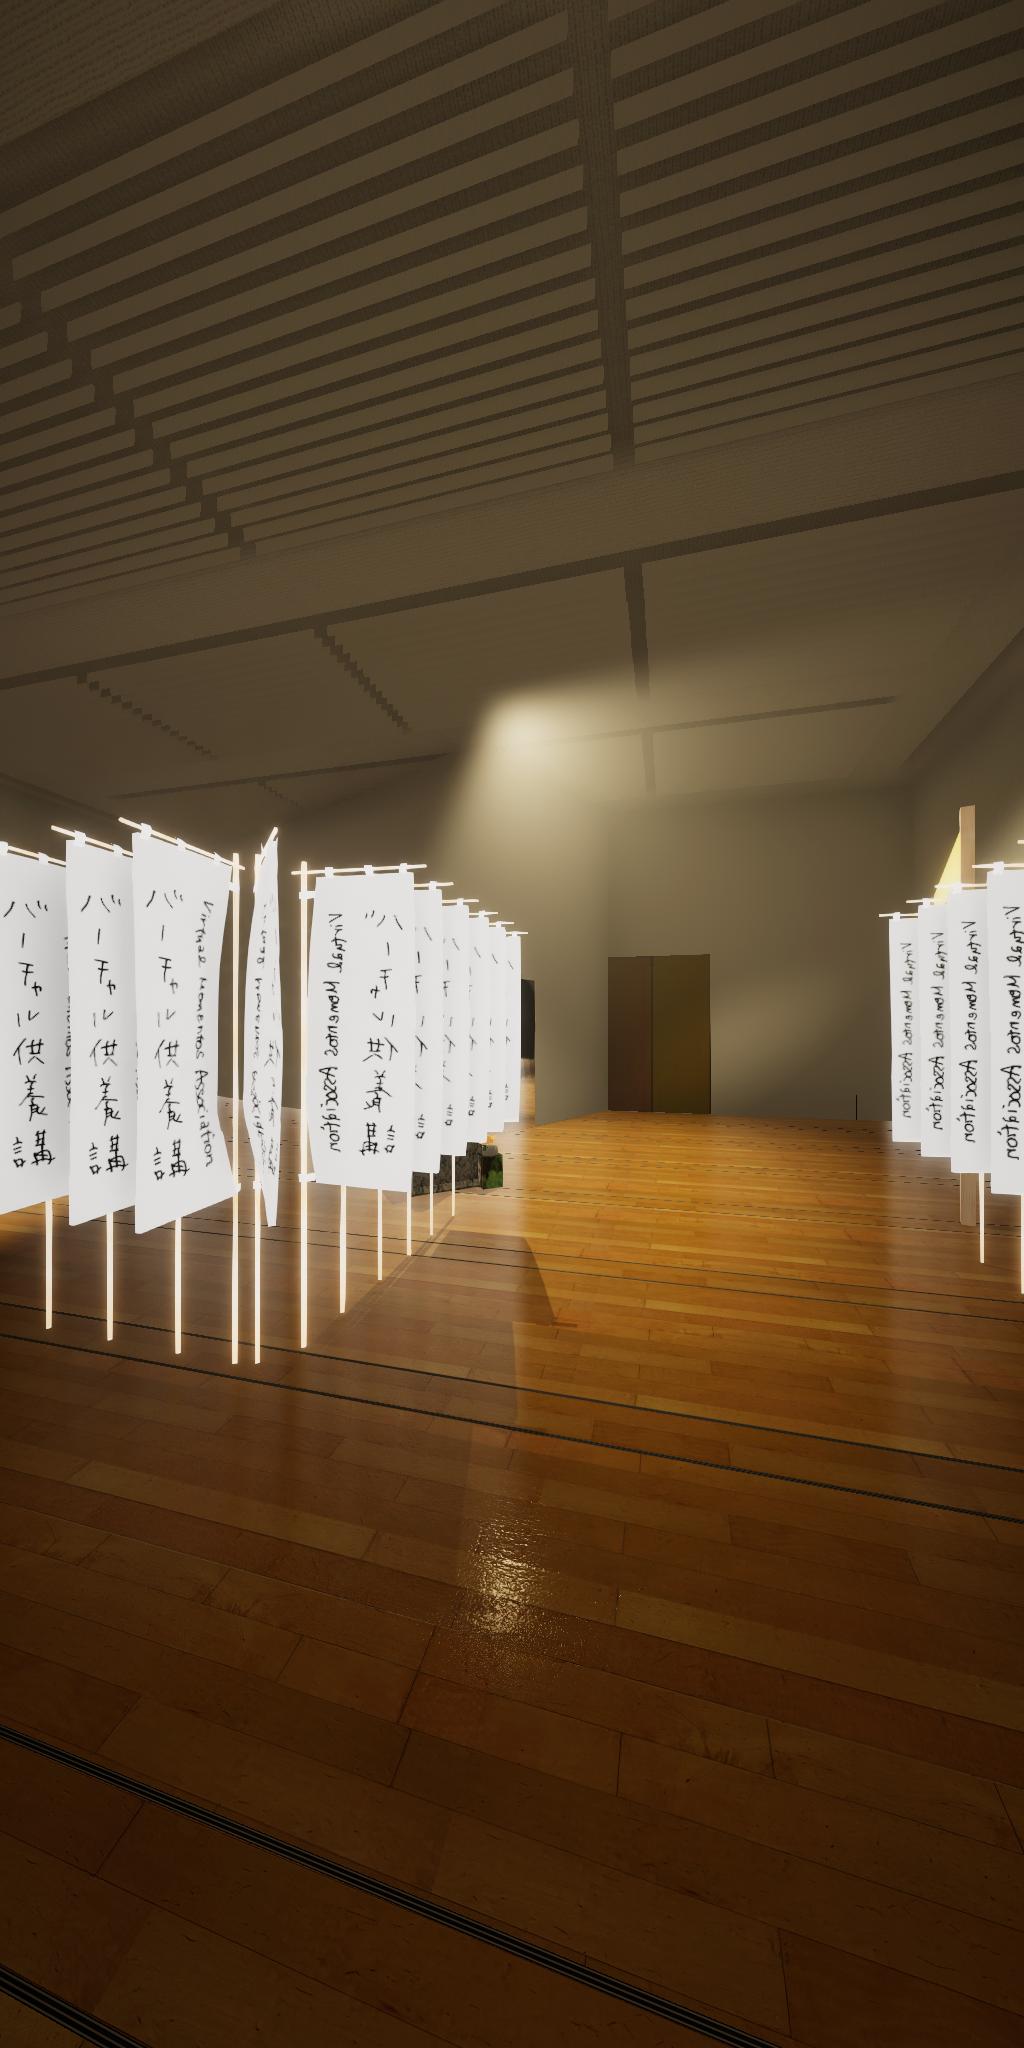 バーチャル供養講
バーチャル供養講
バーチャル供養講
Virtual Momentos Association
Virtual Momentos Association
バーチャル供養講
Virtual Momentos Association
Virtual Momentos Association
Virtual Momentos Association
Virtual Momentos Association